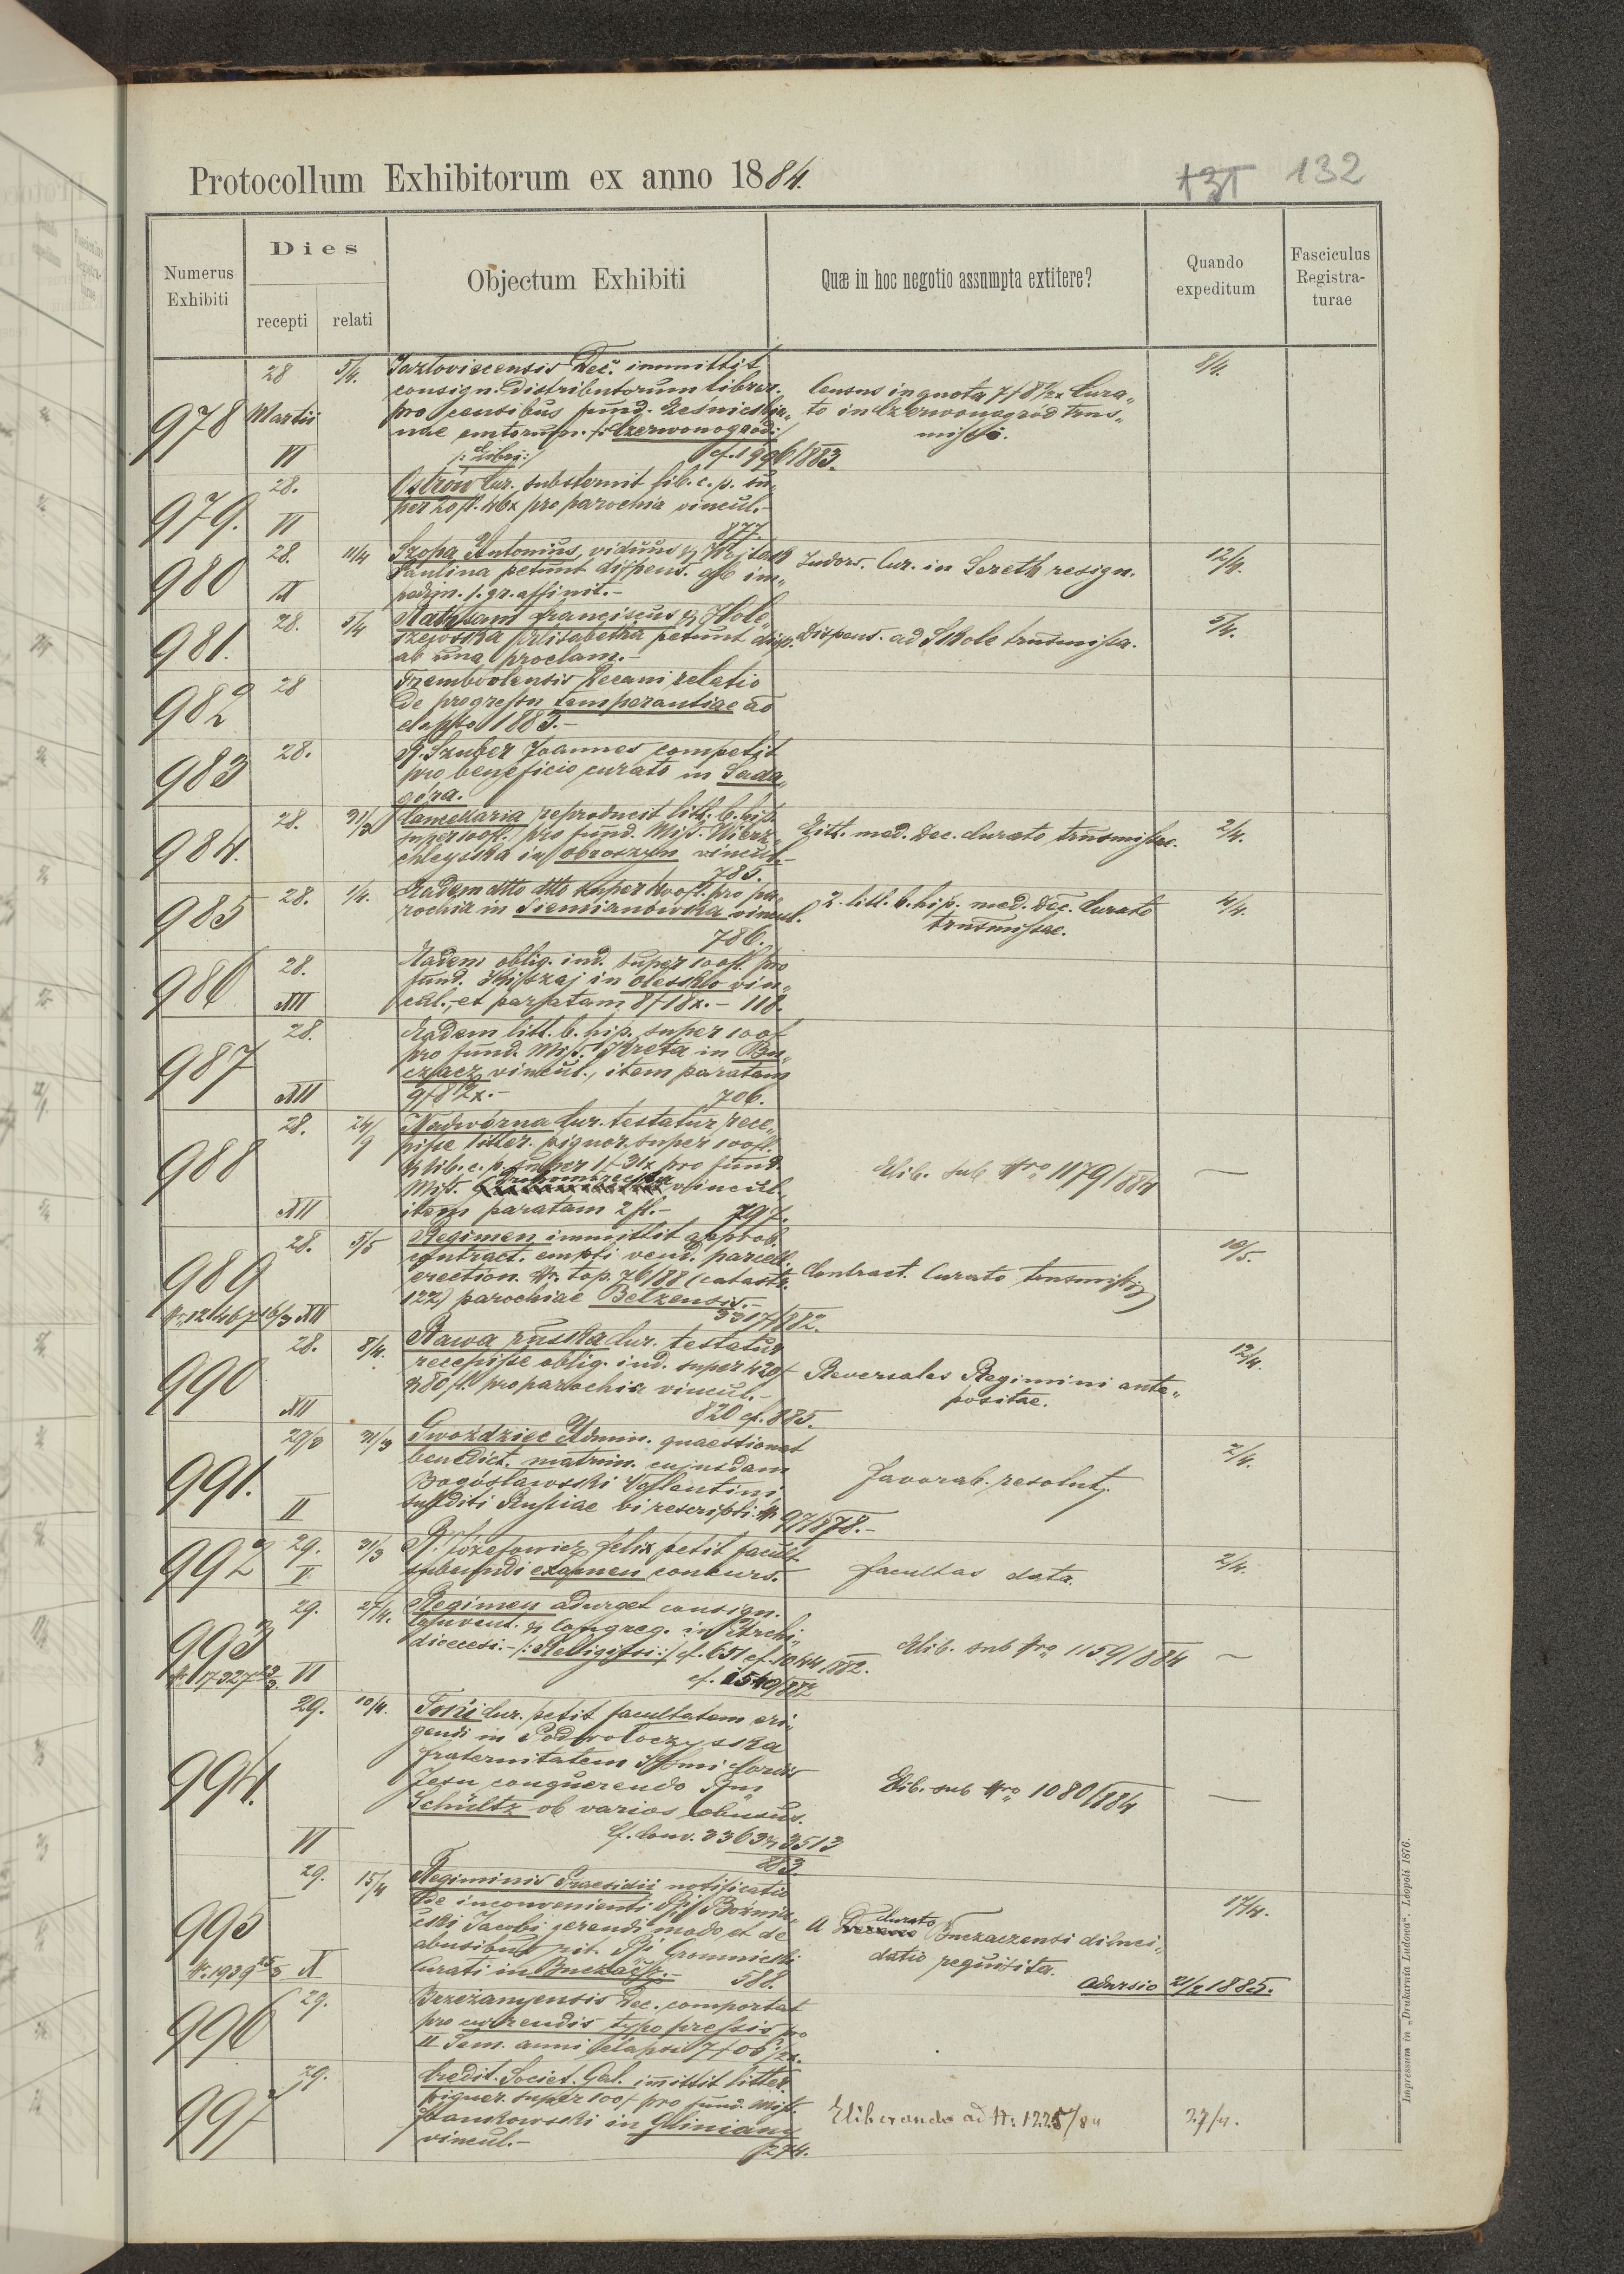 Protocollum Exhibitorum ex anno 1884.
131 132
Numerus Exhibiti
Dies
recepti relati
Objectum Exhibiti
Quæ in hoc negotio assumpta extitere?
Quando expeditum
Fasciculus Registra-
turae
978 28 Martii VI 5/4.
Jazloviecensis Dec. immittit
consign. Distributorum libror.
pro censibus fund.
nae emtorum. /:Czerwonogród:/
/:Libri:/ cf. 1996/883.
Census in quota 7f 8½x Cura„
to in Czerwonogród trns„
missi.
8/4.
979. 28. VI
Ostrów Cur. substernit lib. c. p. su„
per 20fl. 46x pro parochia vincul.-
877.
980 28. II 11/4
Szopa Antonius, viduus & Wojtasik
Paulina petunt dispens. ab im„
pedim. 1. gr. affinit.-
Indors. Cur. in Sereth resign.
12/4.
981. 28. 5/4
Franciscus & Hole„
szewska Elisabetha petunt disp.
ab una proclam.-
Dispens. ad Skole trnsmissa.
5/4.
982 28
Trembovlensis Decani relatio
de progressu temperantiae ao
elapso 1883.-
983 28.
R. Szuber Joannes competit
pro beneficio curato in Sada„
góra.
984. 28. 31/3
Cancellaria reproducit litt. b. hip.
super 100fl. pro fund. Miss. Wierz„
chleyska in Obroszyn vincul.-
785.
Litt. med. Dec. Curato trnsmissae.
2/4.
985 28. 1/4.
Eadem dtto dtto super 400fl. pro pa„
rochia in Siemianówka vincul.
786.
2. litt. b. hip. med. Dec. Curato
trnsmissae.
4/4.
986 28. XII
Eadem oblig. ind. super 100fl. pro
fund. in Olesko vin„
cul., et paratam 8f 18x.- 118.
987 28. XII
Eadem litt. b. hip. super 100f
pro fund. Miss. Kreta in Bu„
czacz vincul., item paratam
9f 8½x.- 706.
988 28. XII 24/9
Nadwórna Cur. testatur rece„
pisse litter. pignor. super 100fl.
& lib. c. p. super 1f 31x pro fund.
Miss. vincul.,
item paratam 2fl.- 797.
Elib. sub Nro 1179/884
—
989 Nr. 12467 16/3 XII 28. 5/5
Regimen immittit approb.
contract. empti vend. parcell.
erection. Nr. top. 76/88 (catastr.
122) parochiae Betzensis.-
3317/882.
Contract. Curato trnsmissi
10/5.
990 28. XII 8/4.
Rawa ruska Cur. testatur
recepisse oblig. ind. super 420f
& 80fl. pro parochia vincul.-
820 cf. 885.
Reversales Regimini ante„
positae.
12/4.
991. 29/3 II 31/3
Gwoździec Admin. quaestionat
benedict. matrim. cujusdam
Bogósławski Vallentini,
subditi Russiae vi rescripti: Nr 97/878.-
Favorab. resolut.
2/4.
992 29. V 31/3
R. Józefowicz Felix petit facult.
subeundi examen concurs.
Facultas data.
2/4.
993 Nr. 17327 23/3. VI 29. 27/4.
Regimen adurget consign.
Convent. & Congreg. in Archi„
dioecesi.- /:Religiosi:/ cf. 651 cf. 1044/882.
cf. 1540/882
Elib. sub Nro 1159/884
—
994. 29. VI 10/4.
Toki Cur. petit facultatem eri„
gendi in Podwołoczyska
Fraternitatem SSmi Cordis
Jesu conquerendo Rm
Schültz ob varios abusus.
Cf. Conv. 3363 & 3513
883
Elib. sub Nro 1080/884
—
995 Nr. 1939 25/3 X 29. 15/4
Regiminis Praesidii notificatio
de inconvenienti Rji Boźnia„
cki Jacobi gerendi modo et de
abusibus pit. Rji Gromnicki
curati in Buczacz.- 588.
A Curato Buczaczensi diluci„
datio requisita.
Adursio 21/2 1885.
17/4.
996 29.
Brzeżanyensis Dec. comportat
pro currendis typo pressis pro
II Sem. anni elapsi 7f 06½x.
997 29.
Credit. Societ. Gal. imittit litter.
pignor. super 100f pro fund. Miss.
Stankowski in Gliniany
vincul.- 274.
Eliberando ad N: 1225/84
27/4.
Impressum in „Drukarnia Ludowa“. Leopoli 1876.